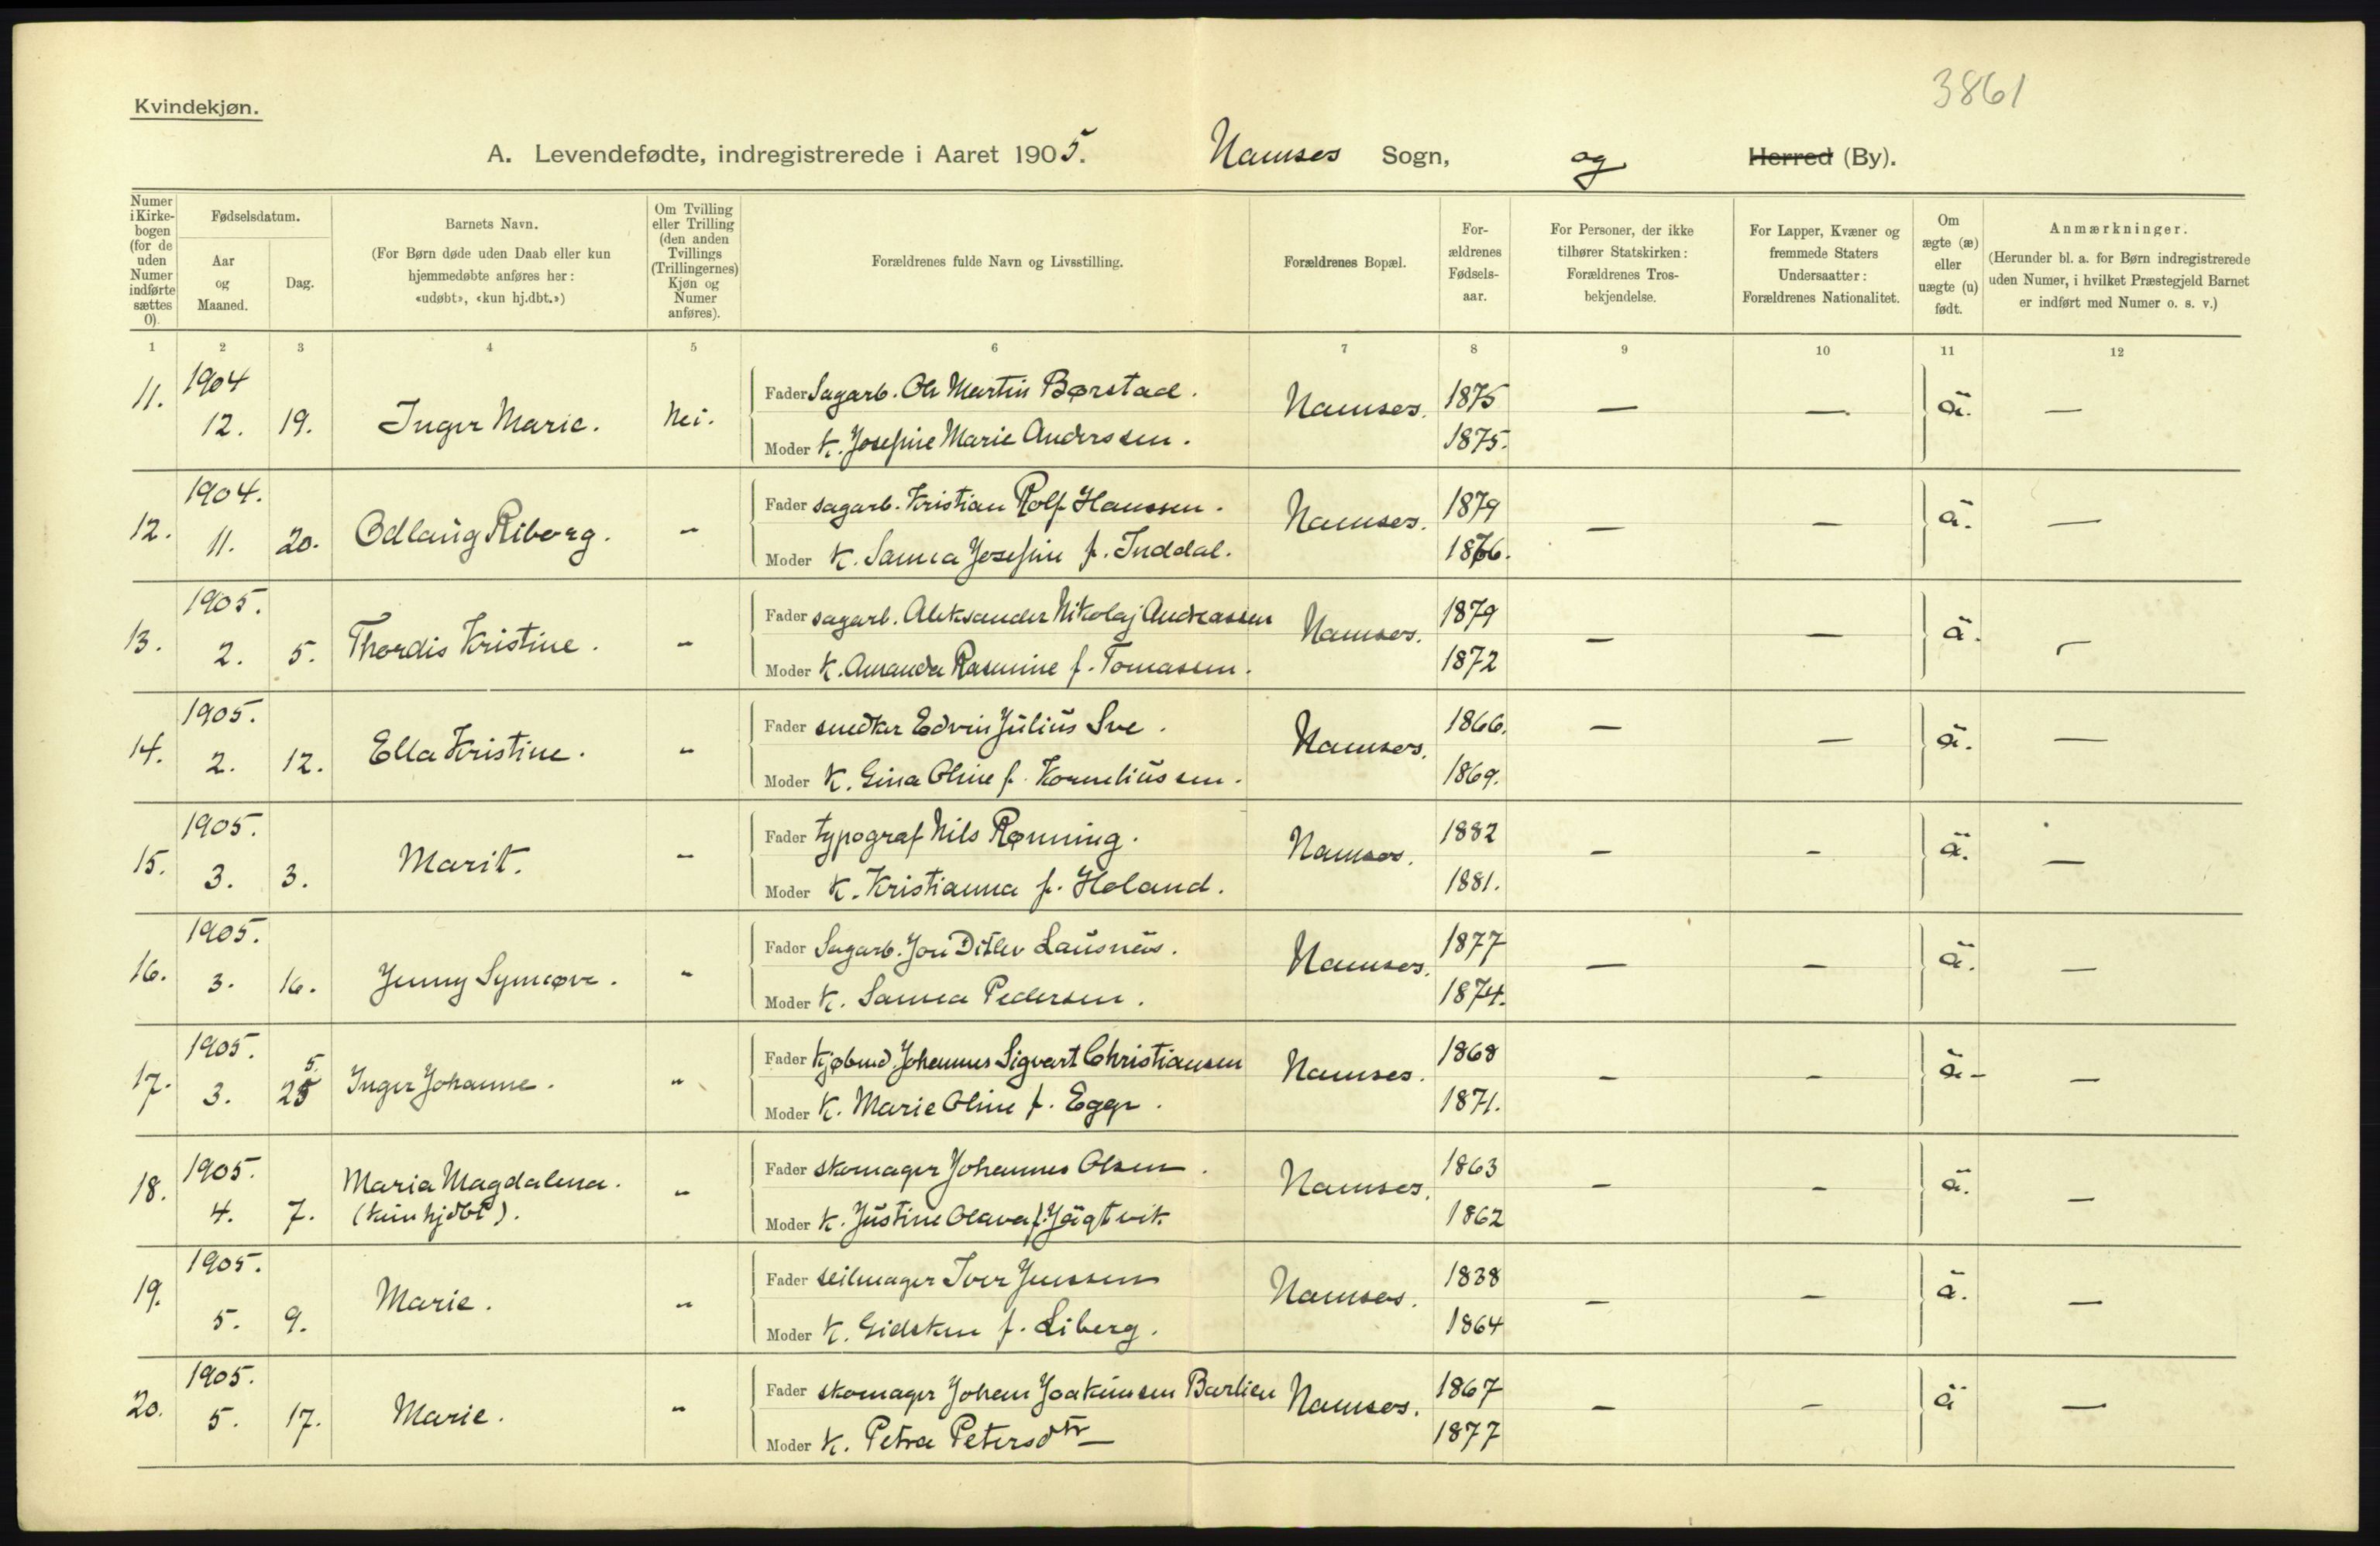 3861
Kvindekjøn.
A. Levendefødte, indregistrerede i Aaret 1905. Namsos Sogn, og Herred (By).
Numer i Kirkebogen (for de uden Numer indførte sættes 0).
Fødselsdatum.
Aar og Maaned.
Dag.
Barnets Navn.
(For Børn døde uden Daab eller kun hjemmedøbte anføres her: «udøbt», «kun hj.dbt.»)
Om Tvilling eller Trilling (den anden Tvillings (Trillingernes) Kjøn og Numer anføres).
Forældrenes fulde Navn og Livsstilling.
Forældrenes Bopæl.
Forældrenes Fødselsaar.
For Personer, der ikke tilhører Statskirken: Forældrenes Trosbekjendelse.
For Lapper, Kvæner og fremmede Staters Undersaatter: Forældrenes Nationalitet.
Om ægte (æ) eller uægte (u) født.
Anmærkninger.
(Herunder bl. a. for Børn indregistrerede uden Numer, i hvilket Præstegjeld Barnet er indført med Numer o. s. v.)
1 2 3 4 5 6 7 8 9 10 11 12
11. 1904 12. 19. Inger Marie. Nei. Fader Sagarb. Ole Martin Børstad. Namsos. 1875 — — ä. —
Moder K. Josefine Marie Anderssen. 1875.
12. 1904. 11. 20. Odlaug Riborg. - Fader sagarb. Kristian Rolf Hanssen. Namsos. 1879 — — ä. —
Moder K. Sanna Josefine f. Inddal. 1876.
13. 1905. 2. 5. Thordis Kristine. - Fader sagarb. Aleksander Nikolaj Andreassen Namsos. 1879 — — ä. —
Moder K. Amanda Rasmine f. Tomassen. 1872
14. 1905. 2. 12. Ella Kristine. - Fader snedker Edvin Julius Sve. Namsos. 1866. — — ä. —
Moder K. Gina Oline f. Korneliussen. 1869.
15. 1905. 3. 3. Marit. - Fader typograf Nils Rønning. Namsos. 1882 — - ä. —
Moder K. Kristianna f. Holand. 1881.
16. 1905. 3. 16. Jenny Synnøve. - Fader Sagarb. Jon Ditlev Lausnes. Namsos. 1877 — — ä. —
Moder K. Sanna Pedersen. 1874.
17. 1905. 3. 25 5. Inger Johanne. - Fader Kjøbmd. Johannes Sigvart Christiansen Namsos. 1868 — - ä- —
Moder K. Marie Oline f. Egge. 1871.
18. 1905. 4. 7. Maria Magdalena. - Fader skomager Johannes Olsen. Namsos. 1863 — - ä. —
(kun hjdbt). Moder K. Justine Olava f. Jägtvik 1862
19. 1905. 5. 9. Marie. - Fader seilmager Iver Jenssen Namsos. 1838 — — ä. —
Moder K. Gidsken f. Liberg. 1864
20. 1905. 5. 17. Marie. - Fader skomager Johan Joakimsen Barlien Namsos. 1867 — - ä —
Moder K. Petra Petersdtr 1877